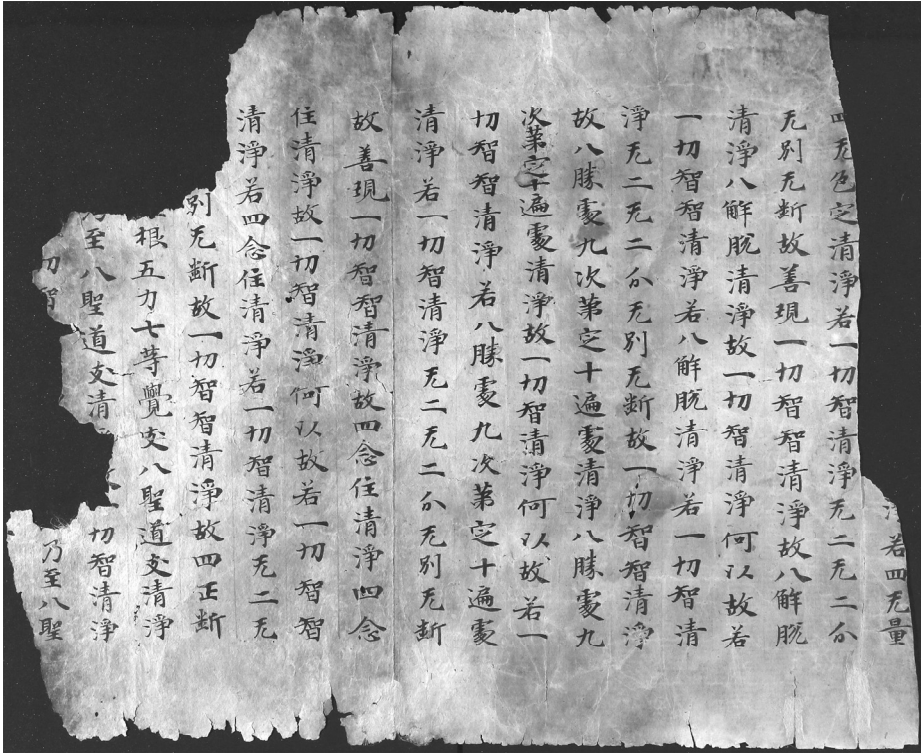 若四无量
四无色定清淨若一切智清淨无二无二分
无別无断故善現一切智智清淨故八解脫
清淨八解脫清淨故一切智清淨何以故若
一切智智清淨若八解脫清淨若一切智清
淨无二无二分无別无断故一切智智清淨
故八勝處九次第定十遍處清淨八勝處九
次第定十遍處清淨故一切智清淨何以故若一
切智智清淨若八勝處九次第定十遍處
清淨若一切智清淨无二无二分无別无断
故善現一切智智清淨故四念住清淨四念
住清淨故一切智清淨何以故若一切智智
清淨若四念住清淨若一切智清淨无二无
別无断故一切智智清淨故四正断
根五力七等覺支八聖道支清淨
至八聖道支清 一切智清淨
切智 乃至八聖